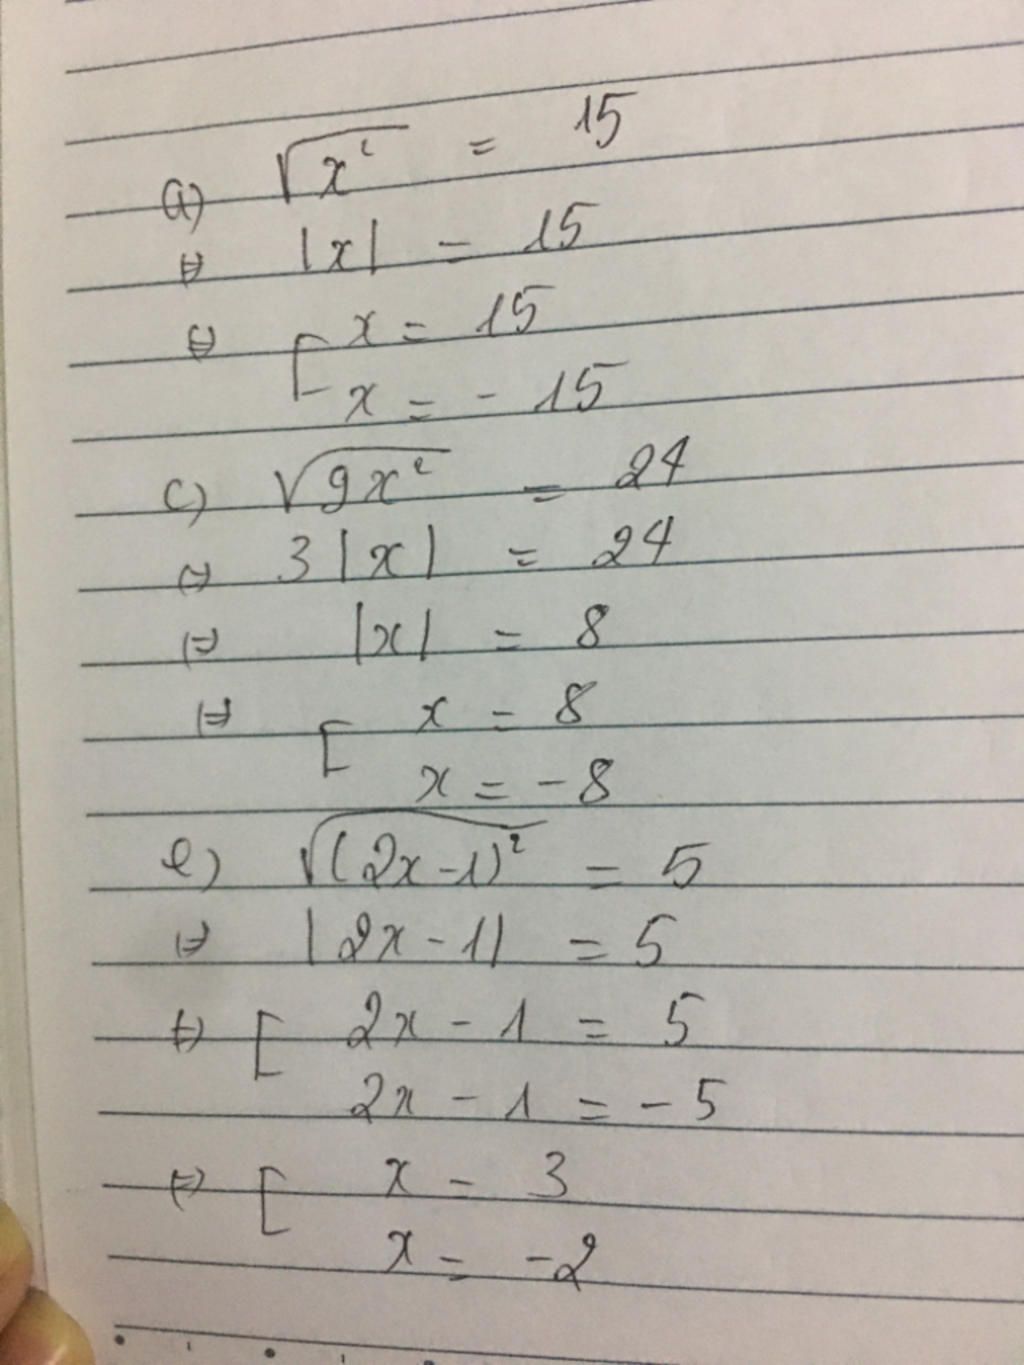 a) √x² = 15
⇔ |x| = 15
⇔ [ x = 15
x = - 15
c) √9x² = 24
⇔ 3|x| = 24
⇔ |x| = 8
⇔ [ x = 8
x = - 8
e) √(2x-1)² = 5
⇔ |2x - 1| = 5
⇔ [ 2x - 1 = 5
2x - 1 = - 5
⇔ [ x = 3
x = -2